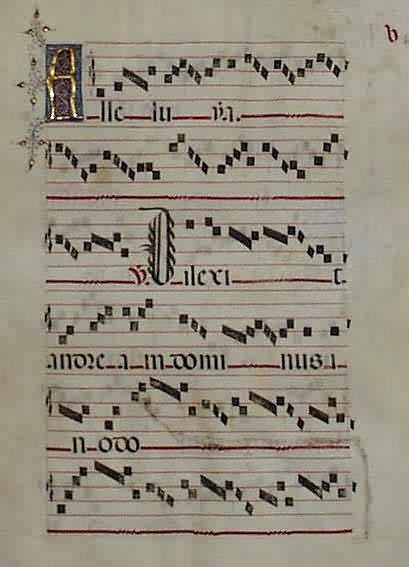 b
Alle lu ya.
℣. Dilexi t
andrea m domi nus i
n odo